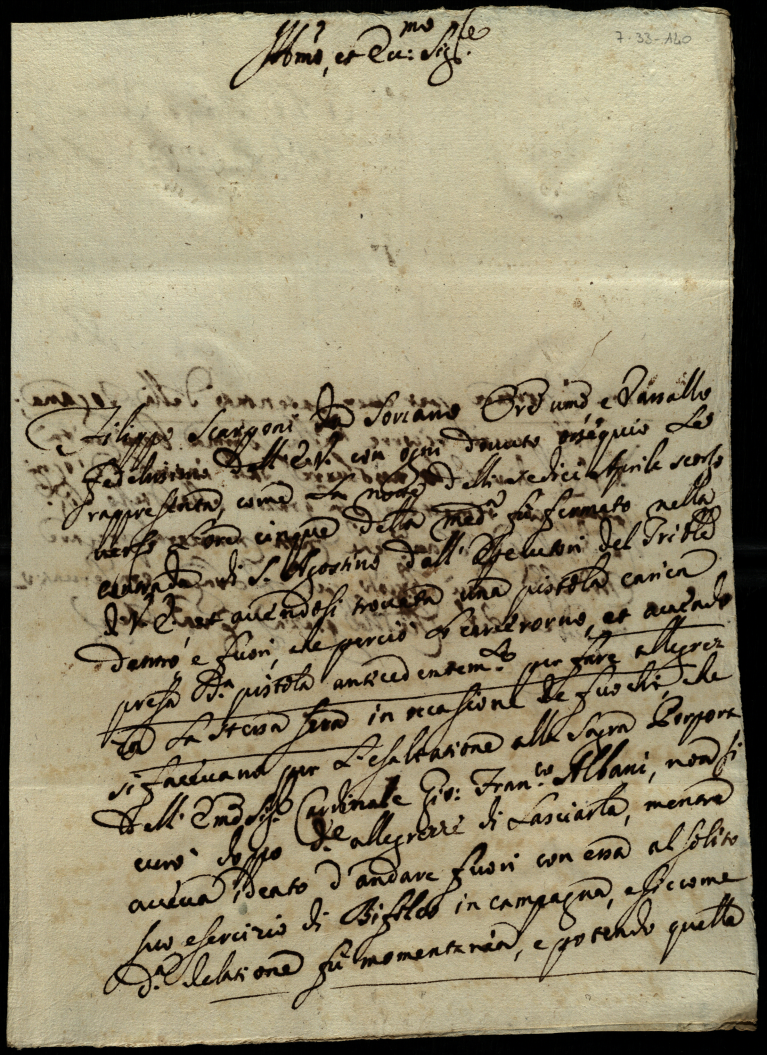 7-33-140
Ill:mo, et Ecc:mo Sig:re
Filippo Scargoni da Soriano Or:e umo e Vassallo
Fedelissimo dell'E.V. con ogni dovuto ossequio Le
rappresenta, come La notte delli sedici Aprile scorso
verso L'ore cinque della med:a fù fermato nella
contrada di S. Agostino dall'Esecutori del Trib:le
di V.E. et avendosi trovata una pistola carica
dentro, e fuori, che perciò Lo carcerorno, et avendo
presa d:a pistola antecedentem:te per fare allegrez
za La stessa sera in occasione de fuochi, che
si facevano per L'esaltazione alla Sagra Porpora
dell'Em:o Sig: Cardinale Gio: Fran:co Albani, non si
curò doppo d:e allegrezze di Lasciarla, mentre
aveva ideato d'andare fuori con essa al solito
suo esercizio di Bifolco in campagna, e siccome
d:a delatione fù momentanea, e potendo quella